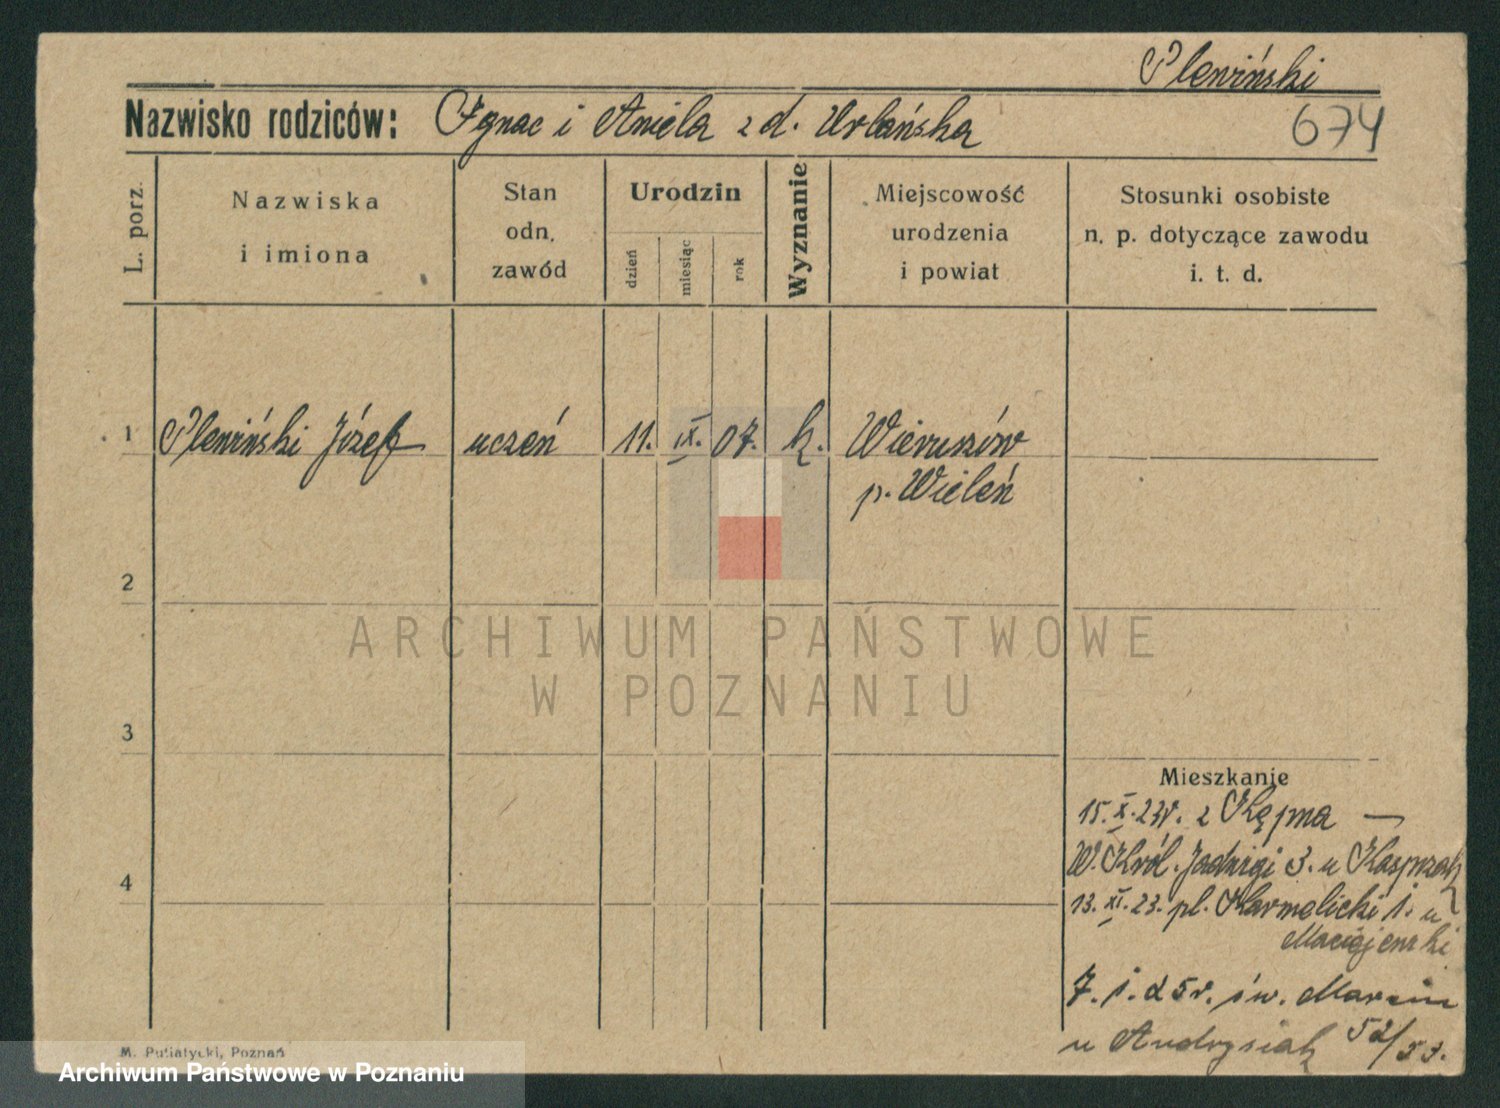 Plewiński
Nazwisko rodziców: Ignac i Aniela z d. Urbańska
674
L. porz.
Nazwiska
i imiona
Stan
odn.
zawód
Urodzin
dzień
miesiąc
rok
Wyznanie
Miejscowość
urodzenia
i powiat
Stosunki osobiste
n. p. dotyczące zawodu
i. t. d.
1 Plewiński Józef uczeń 11. IX. 07. k. Wieruszów
p. Wieleń
2
3
4
Mieszkanie
15. X. 23r. z Kępna —
W. Król. Jadwigi 3. u Kasprzak
13. XI. 23. pl. Karmelicki 1. u
7. 1. 25r. św. Marcin
u Andrysiak 52/53.
ARCHIWUM PAŃSTWOWE
W POZNANIU
M. Putiatycki, Poznań
Archiwum Państwowe w Poznaniu